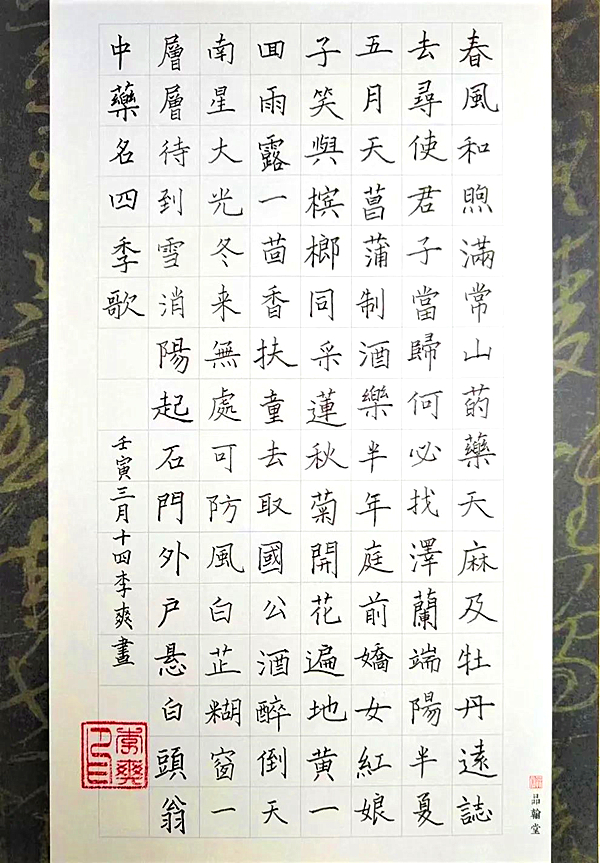 春風和煦滿常山菂藥天麻及牡丹遠誌
去尋使君子當歸何必找澤蘭端陽半夏
五月天菖蒲制酒樂半年庭前嬌女紅娘
子笑與槟榔同采蓮秋菊開花遍地黄一
囬雨露一茴香扶童去取國公酒醉倒天
南星大光冬来無處可防風白芷糊窗一
層層待到雪消陽起石門外戶悬白頭翁
中藥名四季歌
壬寅三月十四李爽畫
品翰堂